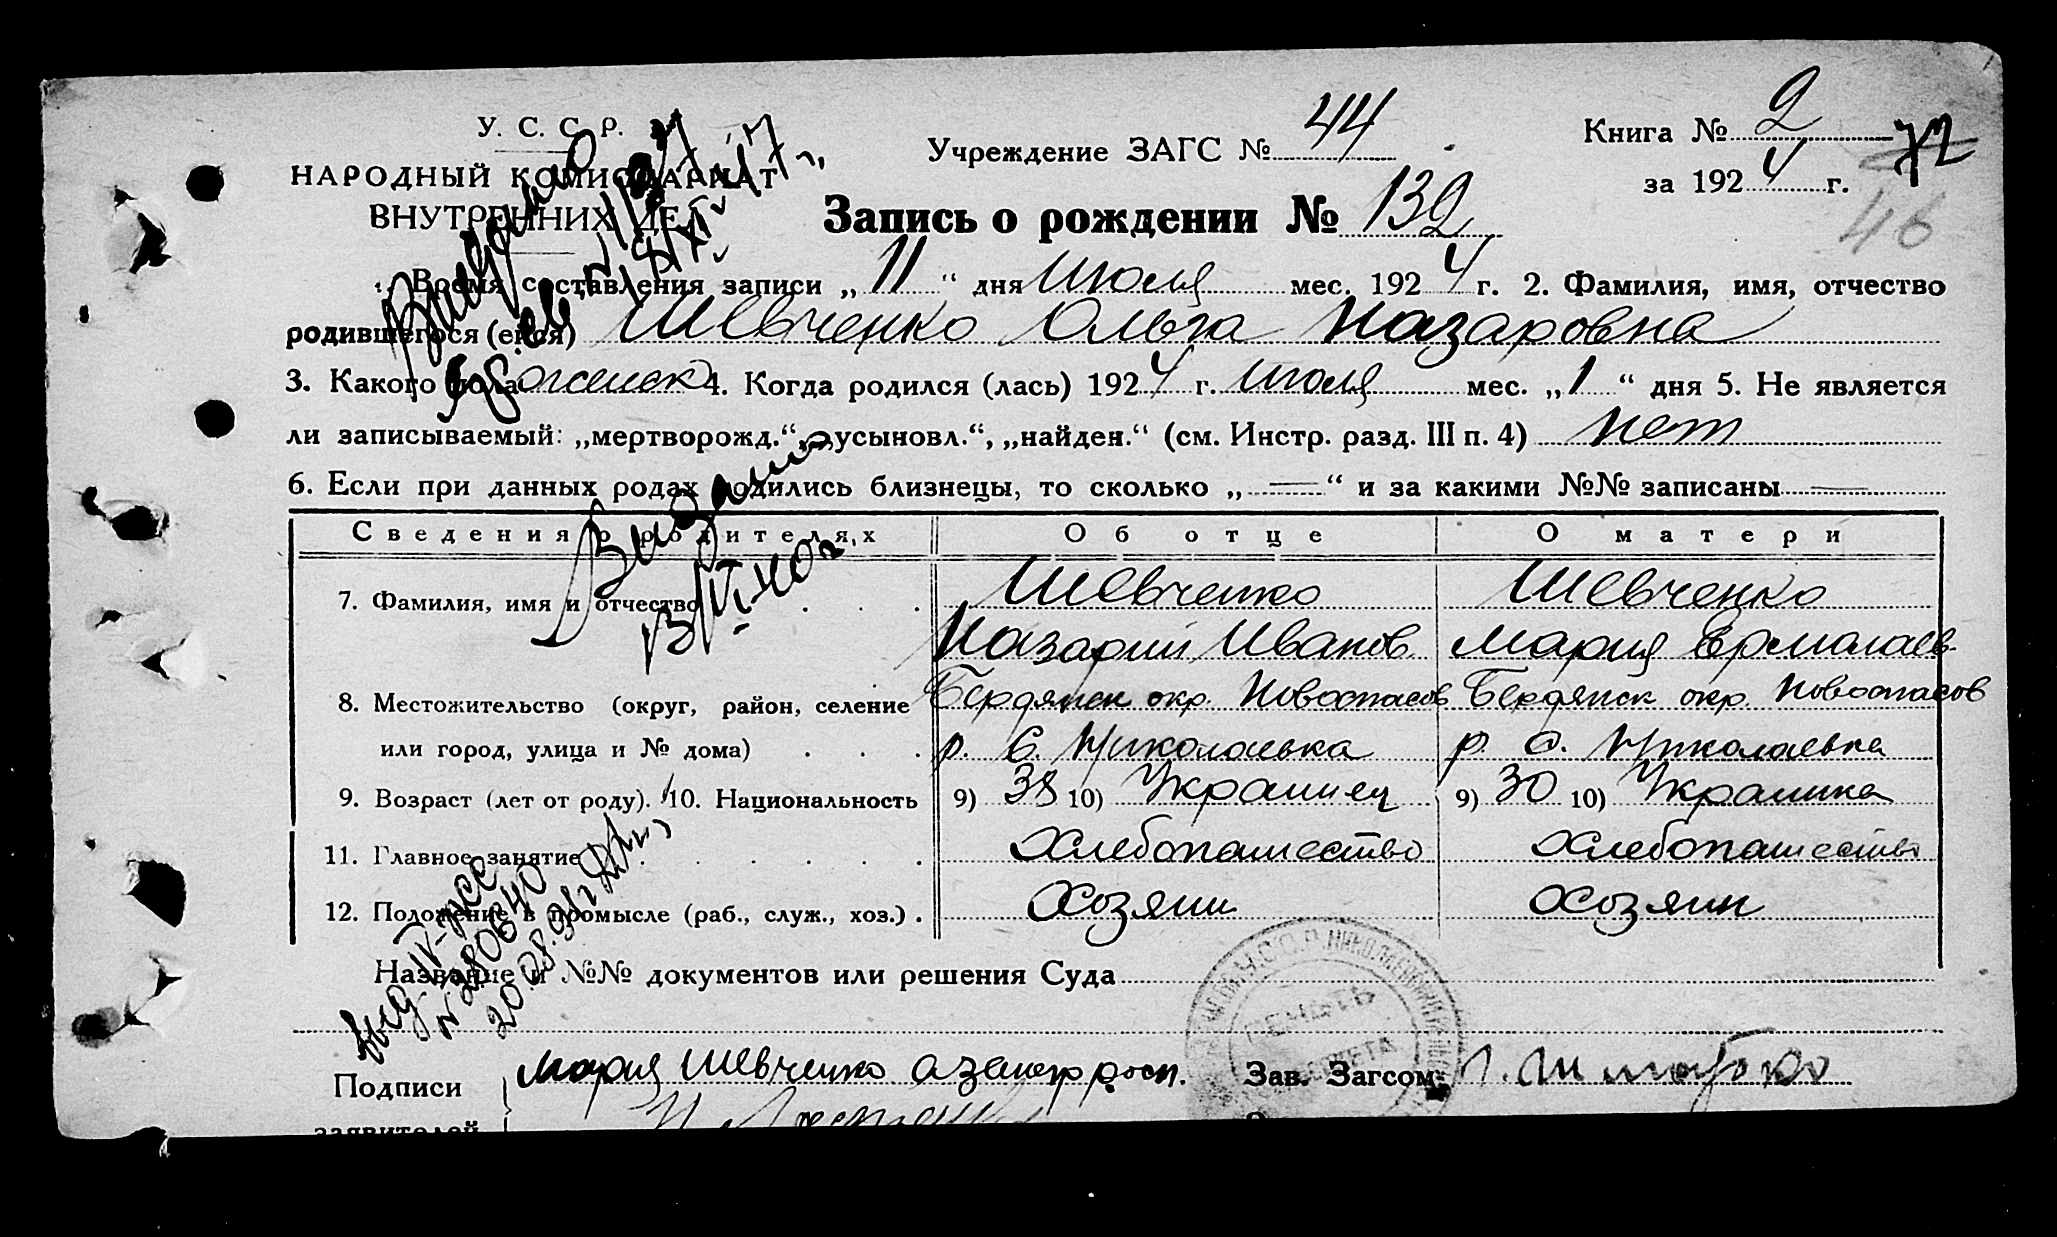 У. С. С. Р.
НАРОДНЫЙ КОМИССАРИАТ
ВНУТРЕННИХ ДЕЛ
Учреждение ЗАГС № 44
Книга № 2
72
за 1924 г.
46
Запись о рождении № 132
1. Время составления записи „11“ дня Июля мес. 1924 г. 2. Фамилия, имя, отчество
родившегося (ейся) Шевченко Ольга Назаровна
3. Какого пола женск 4. Когда родился (лась) 1924 г. Июля мес. „1“ дня 5. Не является
ли записываемый: „мертворожд.“, „усыновл.“, „найден.“ (см. Инстр. разд. III п. 4) Нет
6. Если при данных родах родились близнецы, то сколько „—“ и за какими №№ записаны —
Сведения о родителях Об отце О матери
7. Фамилия, имя и отчество Шевченко Шевченко
Назарий Иванов Мария Ермолаев
8. Местожительство (округ, район, селение Бердянск окр. Новоспасов Бердянск окр. Новоспасов
или город, улица и № дома) р. с. Николаевка р. с. Николаевка
9. Возраст (лет от роду). 10. Национальность 9) 38 10) Украинец 9) 30 10) Украинка
11. Главное занятие Хлебопашество Хлебопашество
12. Положение в промысле (раб., служ., хоз.) Хозяин Хозяин
Название и №№ документов или решения Суда
Подписи Мария Шевченко а за нея росп. Зав. Загсом
заявителей
Выдано
Видано